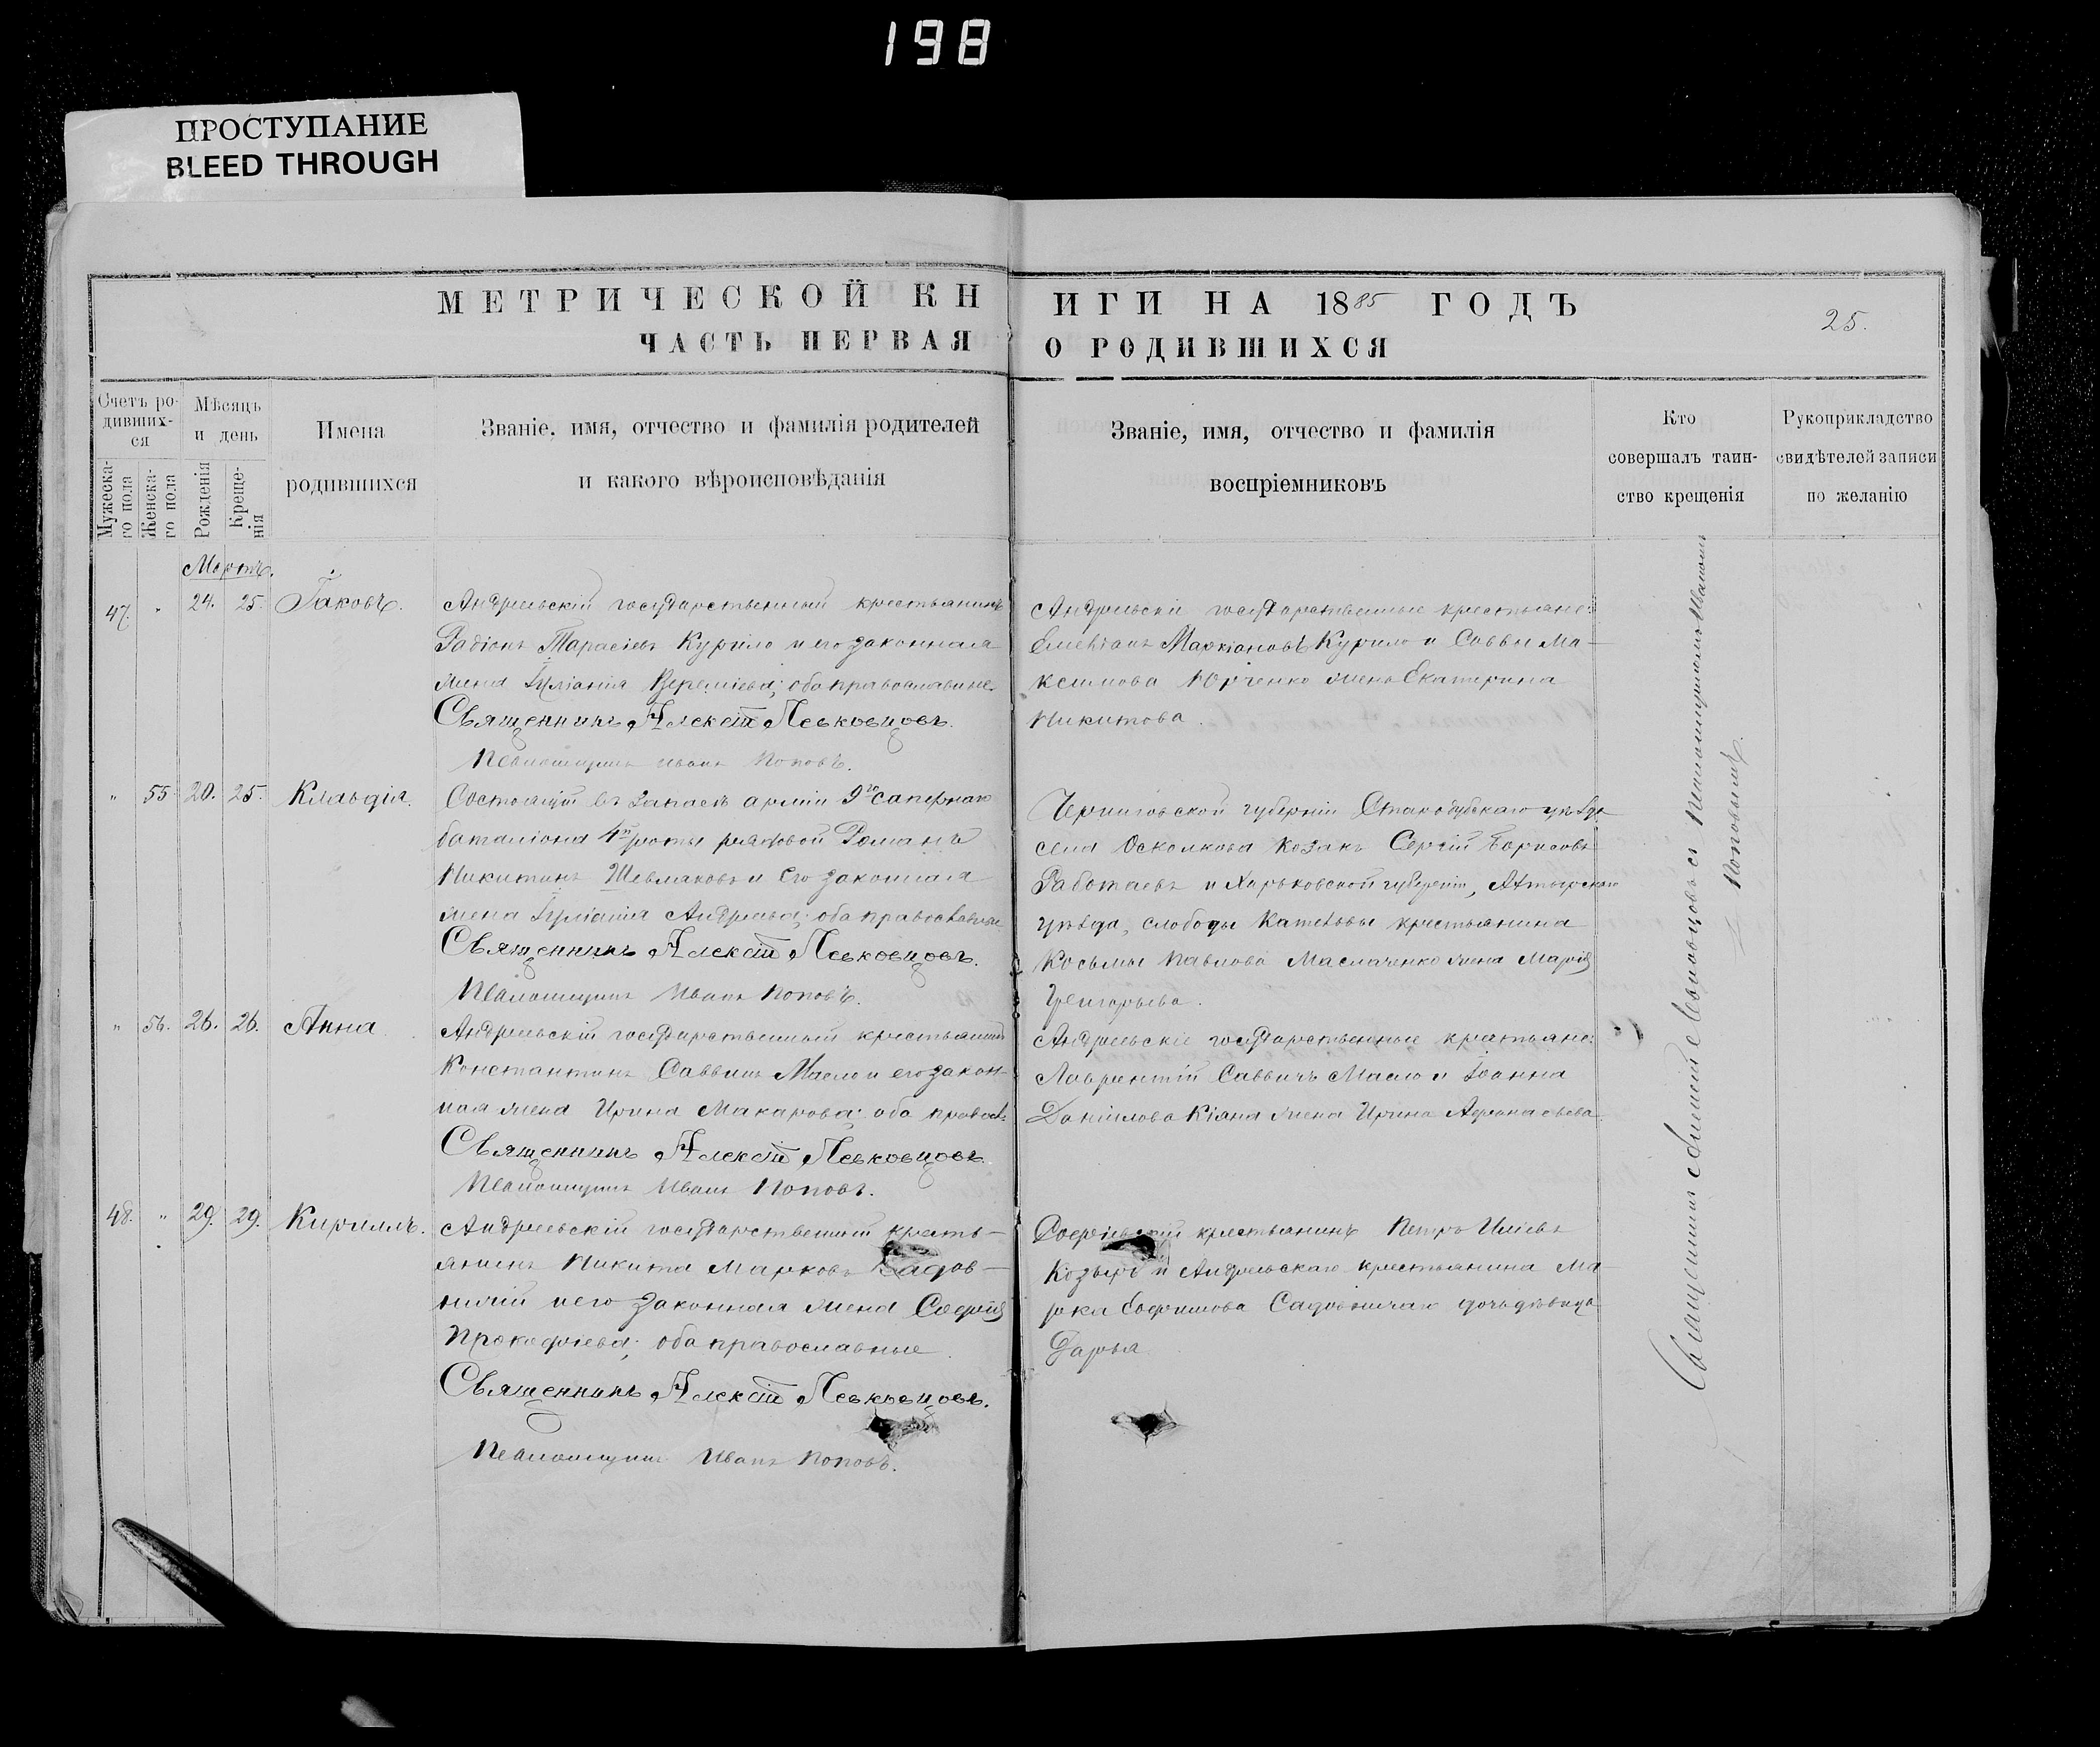 198
ПРОСТУПАНИЕ
BLEED THROUGH
МЕТРИЧЕСКОЙ КНИГИ НА 1885 ГОДЪ
25.
ЧАСТЬ ПЕРВАЯ О РОДИВШИХСЯ
Счетъ ро-
дивших-
ся
Мужеска-
го пола
Женска-
го пола
Мѣсяцъ
и день
Рожденія
Креще-
нія
Имена
родившихся
Званіе, имя, отчество и фамилія родителей
и какого вѣроисповѣданія
Званіе, имя, отчество и фамилія
воспріемниковъ
Кто
совершалъ таин-
ство крещенія
Рукоприкладство
свидѣтелей записи
по желанію
Мартъ.
47. " 24. 25. Іаковъ.
Андреевскій государственный крестьянинъ
Радіонъ Тарасіевъ Курило и его законная
жена Іуліанія Веремиева; оба православные.
Священникъ Алексій Левковцовъ.
Псаломщикъ Иванъ Поповъ.
Андреевскіе государственные крестьяне:
Емеліанъ Маркіановъ Курило и Саввы Ма-
ксимова Юрченко жена Екатерина
Никитова.
" 55 20. 25. Клавдія.
Состоящій въ запасѣ арміи 9го сапернаго
баталіона 4й роты рядовой Романъ
Никитинъ Шевлаковъ и его законная
жена Іуліанія Андреева; оба православные
Священникъ Алексій Левковцовъ.
Псаломщикъ Иванъ Поповъ.
Черниговской губерніи Стародубскаго уѣзда
села Осколкова козакъ Сергій Борисовъ
Работаевъ и Харьковской губерніи, Ахтырскаго
уѣзда, слободы Котельвы крестьянина
Косьмы Павлова Маслаченко жена Марія
Григорьева.
" 56. 26. 26. Анна
Андреевскій государственный крестьянинъ
Константинъ Саввинъ Масло и его закон-
ная жена Ирина Макарова; оба правосл.
Священникъ Алексій Левковцовъ.
Псаломщикъ Иванъ Поповъ.
Андреевскіе государственные крестьяне:
Лаврентій Саввичъ Масло и Іоанна
Даніилова Кіяна жена Ирина Афанасьева
48. " 29. 29. Кириллъ.
Андреевскій государственный кресть-
янинъ Никита Марковъ Садов-
ничій и его законная жена Софія
Прокофіева; оба православные.
Священникъ Алексій Левковцовъ.
Псаломщикъ Иванъ Поповъ.
крестьянинъ Петръ Иліевъ
Козырь и Андреевскаго крестьянина Ма-
рка Ефимова Садовничаго дочь дѣвица
Дарья
Священникъ Алексій Левковцовъ съ псаломщикомъ Иваномъ
Поповымъ.